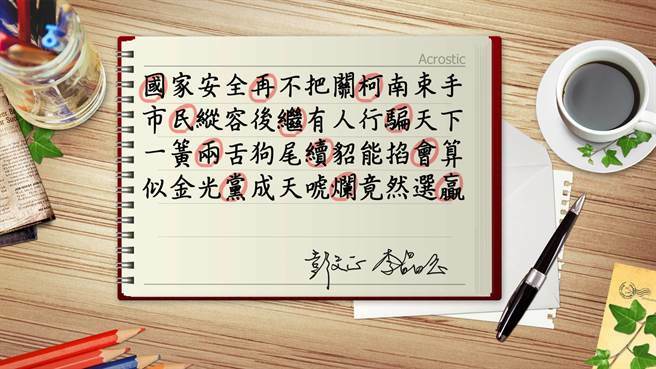 Acrostic
國家安全再不把關柯南束手
市民縱容後繼有人行騙天下
一簧兩舌狗尾續貂能掐會算
似金光黨成天唬爛竟然選贏
彭文正 李晶玉